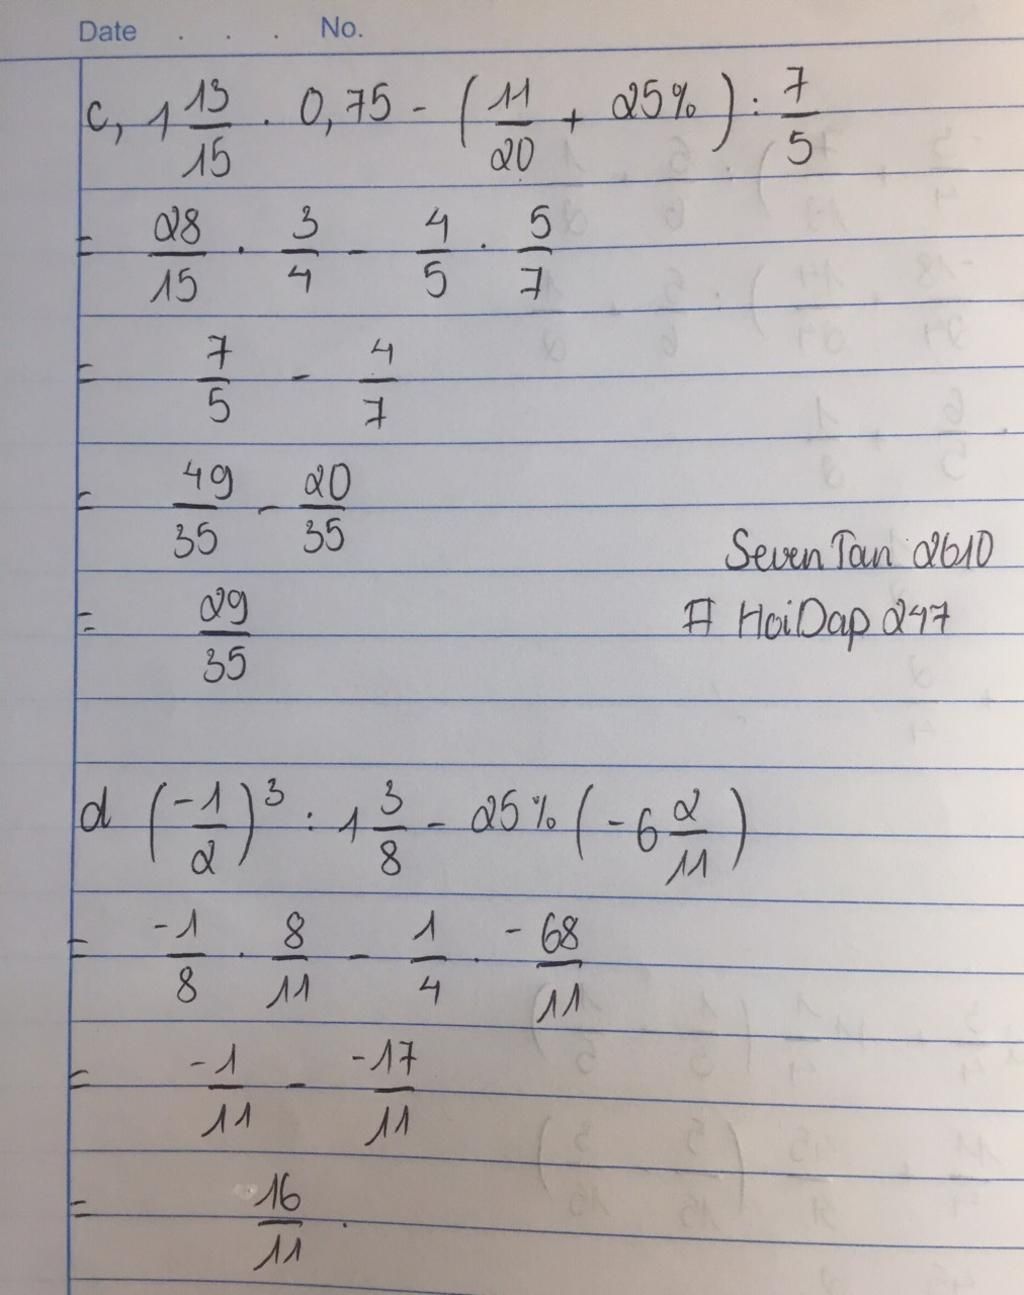 Date . . . No.
c, 1 13/15 . 0,75 - (11/20 + 25%) : 7/5
= 28/15 . 3/4 - 4/5 . 5/7
= 7/5 - 4/7
= 49/35 - 20/35
Seven Tan 2610
= 29/35
# HoiDap 247
d (-1/2)^3 : 1 3/8 - 25% (-6 2/11)
= -1/8 . 8/11 - 1/4 . -68/11
= -1/11 - -17/11
= 16/11 .